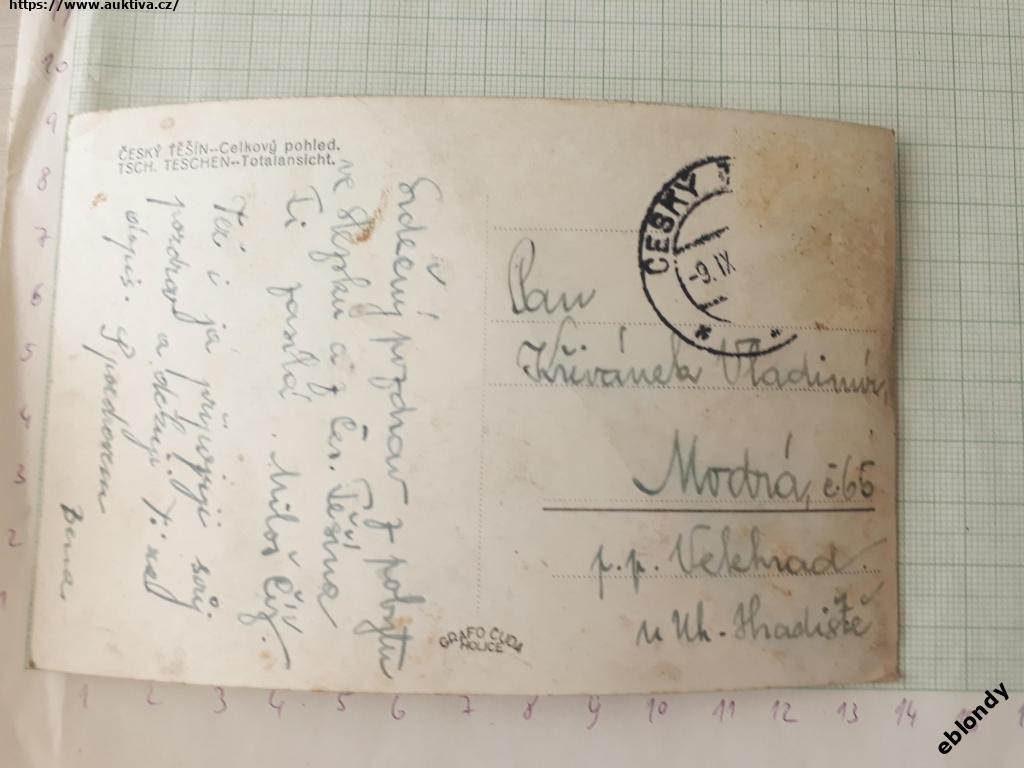 https://www.auktiva.cz/
ČESKÝ TĚŠÍN--Celkový pohled.
TSCH. TESCHEN--Totalansicht.
Srdečný pozdrav z pobytu
ve Slezsku a z Čes. Těšína
Ti posílá Miloš
Též i já připojuji svůj
pozdrav a děkuji
dopis. S pozdravem
Pan
Křivánek Vladimír,
Modrá, č. 65
p.p. Velehrad
u Uh. Hradiště
ČESKÝ
-9.IX
GRAFO ČUDA
HOLICE
10
9
8
7
6
5
4
3
2
1
1 2 3 4 5 6 7 8 9 10 11 12 13 14
eblondy